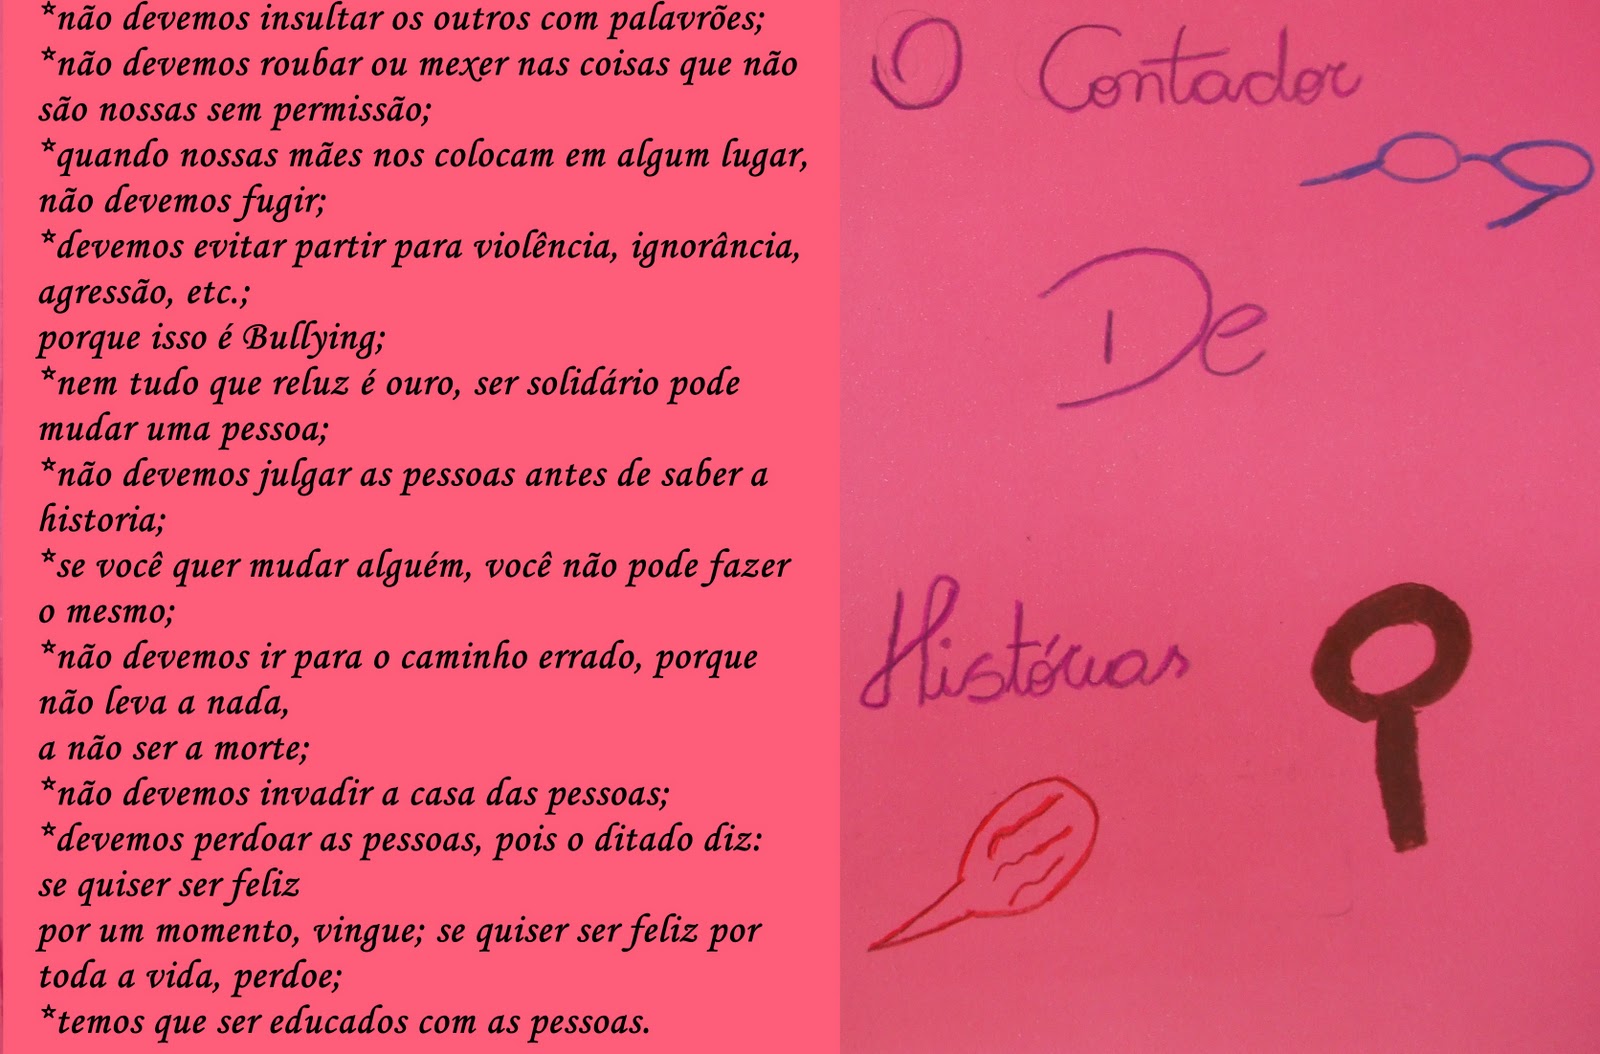 *não devemos insultar os outros com palavrões;
*não devemos roubar ou mexer nas coisas que não
são nossas sem permissão;
*quando nossas mães nos colocam em algum lugar,
não devemos fugir;
*devemos evitar partir para violência, ignorância,
agressão, etc.;
porque isso é Bullying;
*nem tudo que reluz é ouro, ser solidário pode
mudar uma pessoa;
*não devemos julgar as pessoas antes de saber a
historia;
*se você quer mudar alguém, você não pode fazer
o mesmo;
*não devemos ir para o caminho errado, porque
não leva a nada,
a não ser a morte;
*não devemos invadir a casa das pessoas;
*devemos perdoar as pessoas, pois o ditado diz:
se quiser ser feliz
por um momento, vingue; se quiser ser feliz por
toda a vida, perdoe;
*temos que ser educados com as pessoas.
O Contador
De
Histórias